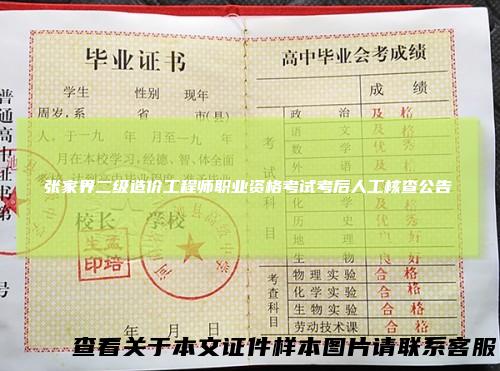 普通高中
证书
第
号
毕业证书
学生 性别 现年
周岁,系 省 市(县)
人。于一九 年 月至一九 年
月在本校学习,经德、智、体全面
考核,达到高中毕业程度,准予毕业
校长 学校
生孟
印培
年 月 日
高中毕业会考成绩
成 绩
考试科目
政 治 及 格
语 文 及 格
数 学 优 秀
外 语 及 格
物 理
化 学 及 格
历 史 及 格
地 理 良 好
生 物 良 好
考查科目
物理实验 合 格
化学实验 合 格
生物实验 合 格
劳动技术课 合 格
张家界二级造价工程师职业资格考试考后人工核查公告
查看关于本文证件样本图片请联系客服